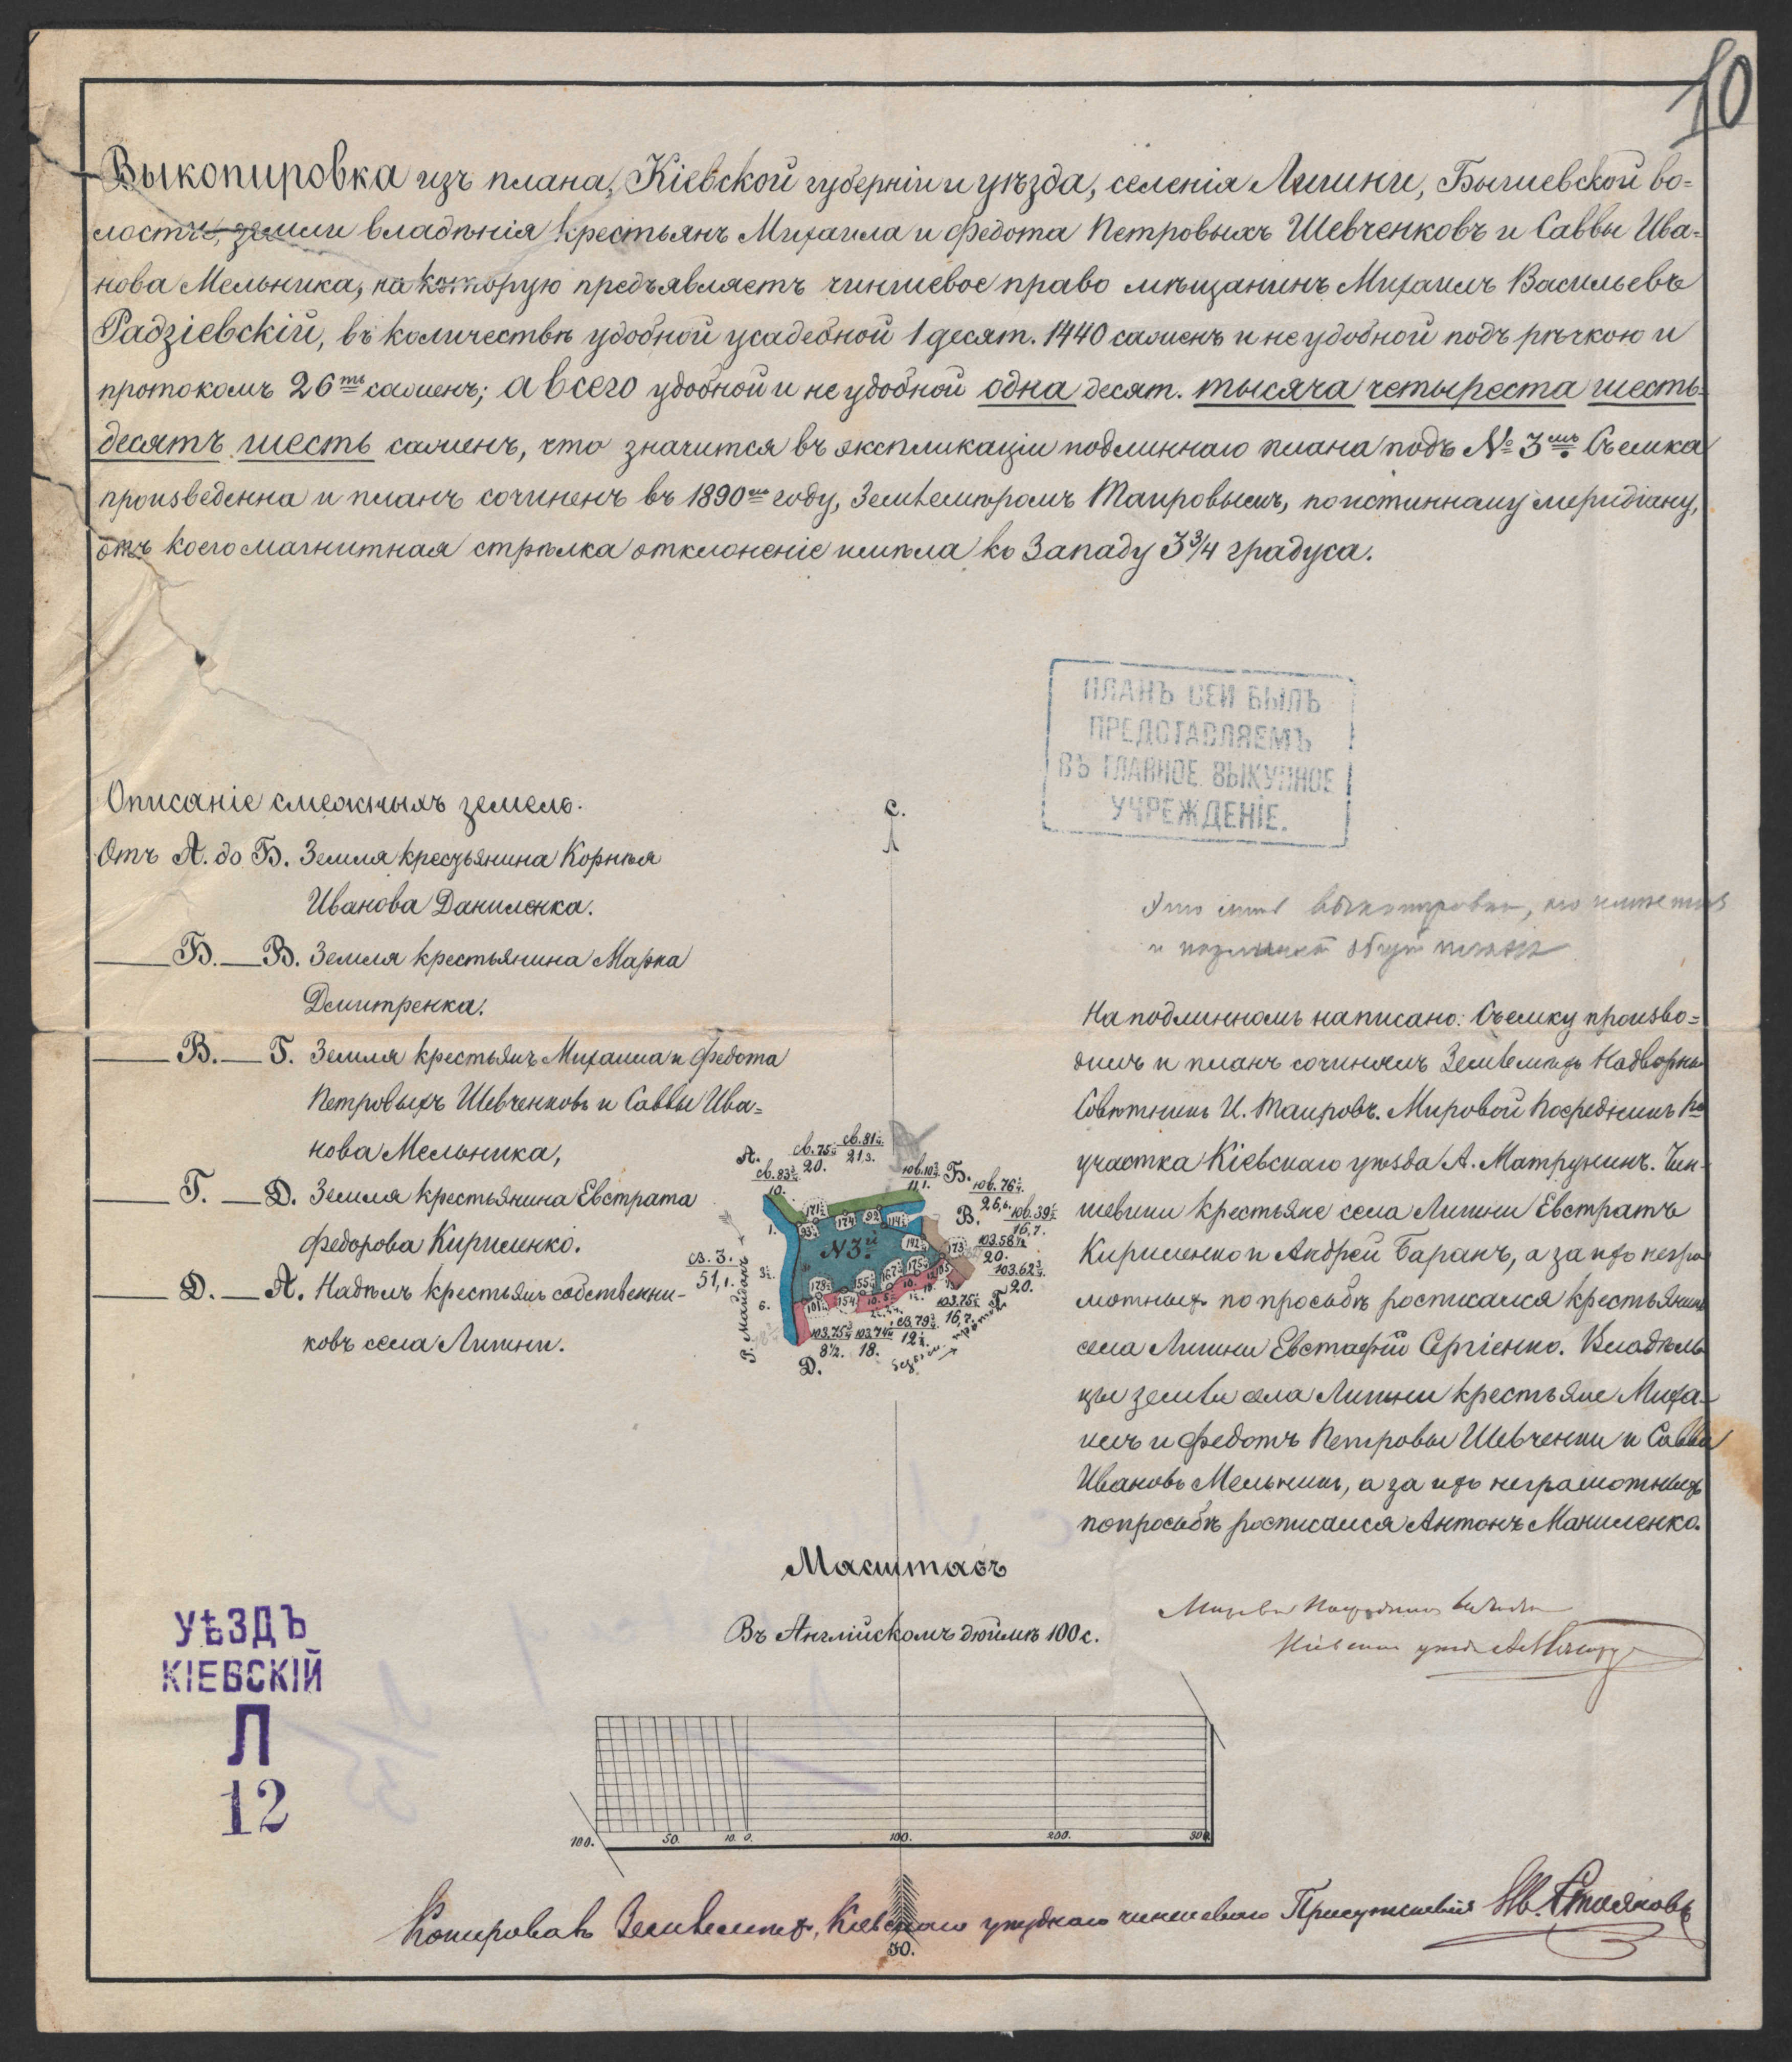 10
Выкопировка изъ плана, Кіевской губерніи и уѣзда, селенія Лишни, Бышевской во=
лости, земли владѣнія крестьянъ Михаила и Федота Петровыхъ Шевченковъ и Саввы Ива=
нова Мельника, на которую предъявляетъ чиншевое право мѣщанинъ Михаилъ Васильевъ
Радзіевскій, въ количествѣ удобной усадебной 1 десят. 1440 саженъ и неудобной подъ рѣчкою и
протокомъ 26ть саженъ; а всего удобной и неудобной одна десят. тысяча четыреста шесть-
десятъ шесть саженъ, что значится въ экспликаціи подлиннаго плана подъ № 3мъ. Съемка
произведенна и планъ сочиненъ въ 1890мъ году, Землемѣромъ Таировымъ, по истинному меридіану,
отъ коего магнитная стрѣлка отклоненіе имѣла къ Западу 3¾ градуса.
ПЛАНЪ СЕЙ БЫЛЪ
ПРЕДСТАВЛЯЕМЪ
ВЪ ГЛАВНОЕ ВЫКУПНОЕ
УЧРЕЖДЕНІЕ.
Описаніе смежныхъ земель.
Отъ А. до Б. Земля крестьянина Корнѣя
Иванова Даниленка.
Б. — В. Земля крестьянина Марка
Дмитренка.
В. — Г. Земля крестьянъ Михаила и Федота
Петровыхъ Шевченковъ и Саввы Ива=
нова Мельника,
Г. — Д. Земля крестьянина Евстрата
Федорова Кириленко.
Д. — А. Надѣлъ крестьянъ собственни-
ковъ села Лишни.
С.
А.
св. 83½
10.
св. 75
20.
св. 81
21,3.
юв. 10¾
11,1.
Б.
юв. 76
26,6.
В.
юв. 39
16,7.
юз. 58
20.
юз. 62¾
20.
Г.
юз. 75
16,7.
св. 79
12½.
юз. 74
18.
юз. 75¾
8½.
Д.
св. 3.
51,1.
N 3й
Р. Майданъ
выкопировки,
На подлинномъ написано: Съемку произво=
дилъ и планъ сочинялъ Землемѣръ Надворны
Совѣтникъ И. Таировъ. Мировой Посредникъ
участка Кіевскаго уѣзда А. Матрунинъ. Чин-
шевики крестьяне села Лишни Евстратъ
Кириленко и Андрей Баранъ, а за ихъ негра
мотныхъ по просьбѣ росписался крестьянинъ
села Лишни Евстафій Сергіенко. Владѣль
цы земли села Лишни крестьяне Миха-
илъ и Федотъ Петровы Шевченки и Савва
Ивановъ Мельникъ, а за ихъ неграмотныхъ
по просьбѣ росписался Антонъ Маниленко.
Масштабъ
Въ Англійскомъ дюймѣ 100 с.
Мировой Посредникъ
Кіевскаго уѣзда
УѢЗДЪ
КІЕВСКІЙ
Л
12
100. 50. 10. 0. 100. 200. 300.
Копировалъ Землемѣръ, Кіевскаго уѣзднаго чиншеваго Присутствія Ив. Стояновъ
Ю.